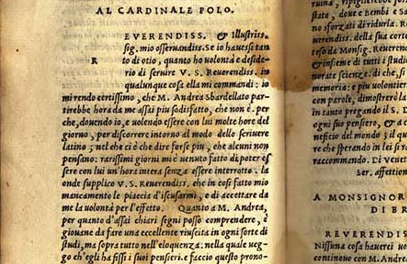 AL CARDINALE POLO.
R EVERENDISS. & illustriss.
sig. mio osseruandiss. Se io hauessi tan
to di otio, quanto ho volontà e deside-
rio di seruire V. S. Reuerendiss. in
qualunque cosa ella mi commandi: io
mi rendo certissimo, che M. Andrea Sbardellato par-
tirebbe hora da me assai piu sodisfatto, che non è. per
che, douendo io, e volendo essere con lui molte hore del
giorno, per discorrere intorno al modo dello scriuere
latino; nel che ci è che dire forse piu, che alcuni non
pensano: rarissimi giorni mi è uenuto fatto di poter es
sere con lui un'hora intera senza essere interrotto. la
onde supplico V. S. Reuerendiss. che in cosi fatto mio
mancamento le piaccia d'iscusarmi, e di accettare da
me la volontà per l'effetto. Quanto a M. Andrea,
per quanto d'assai chiari segni posso comprendere, è
giouane da fare una eccellente riuscita in ogni sorte di
studi, ma sopra tutto nell'eloquenza: nella quale veg-
go ch'egli ha fissi i suoi pensieri. e faccio questo prono-
state, doue e Bembi e Sa
no sforzi di ridurla. R
endiss. della sua corte
tese da Monsig. Reueren
& insieme di tutti i studi
norate scienze. di che, si
memoria: e piu volentier
con parole, dimostrerò la
in tanto pregando S. D
ogni suo pensiero, & a
neficio del mondo; il qu
re che sperando in lei sia
raccommando. Di Venet
Ser. affettion
A MONSIGNOR
DI BR
REVERENDIS
Nissima cosa hauerei uo
continoue con M. Andre